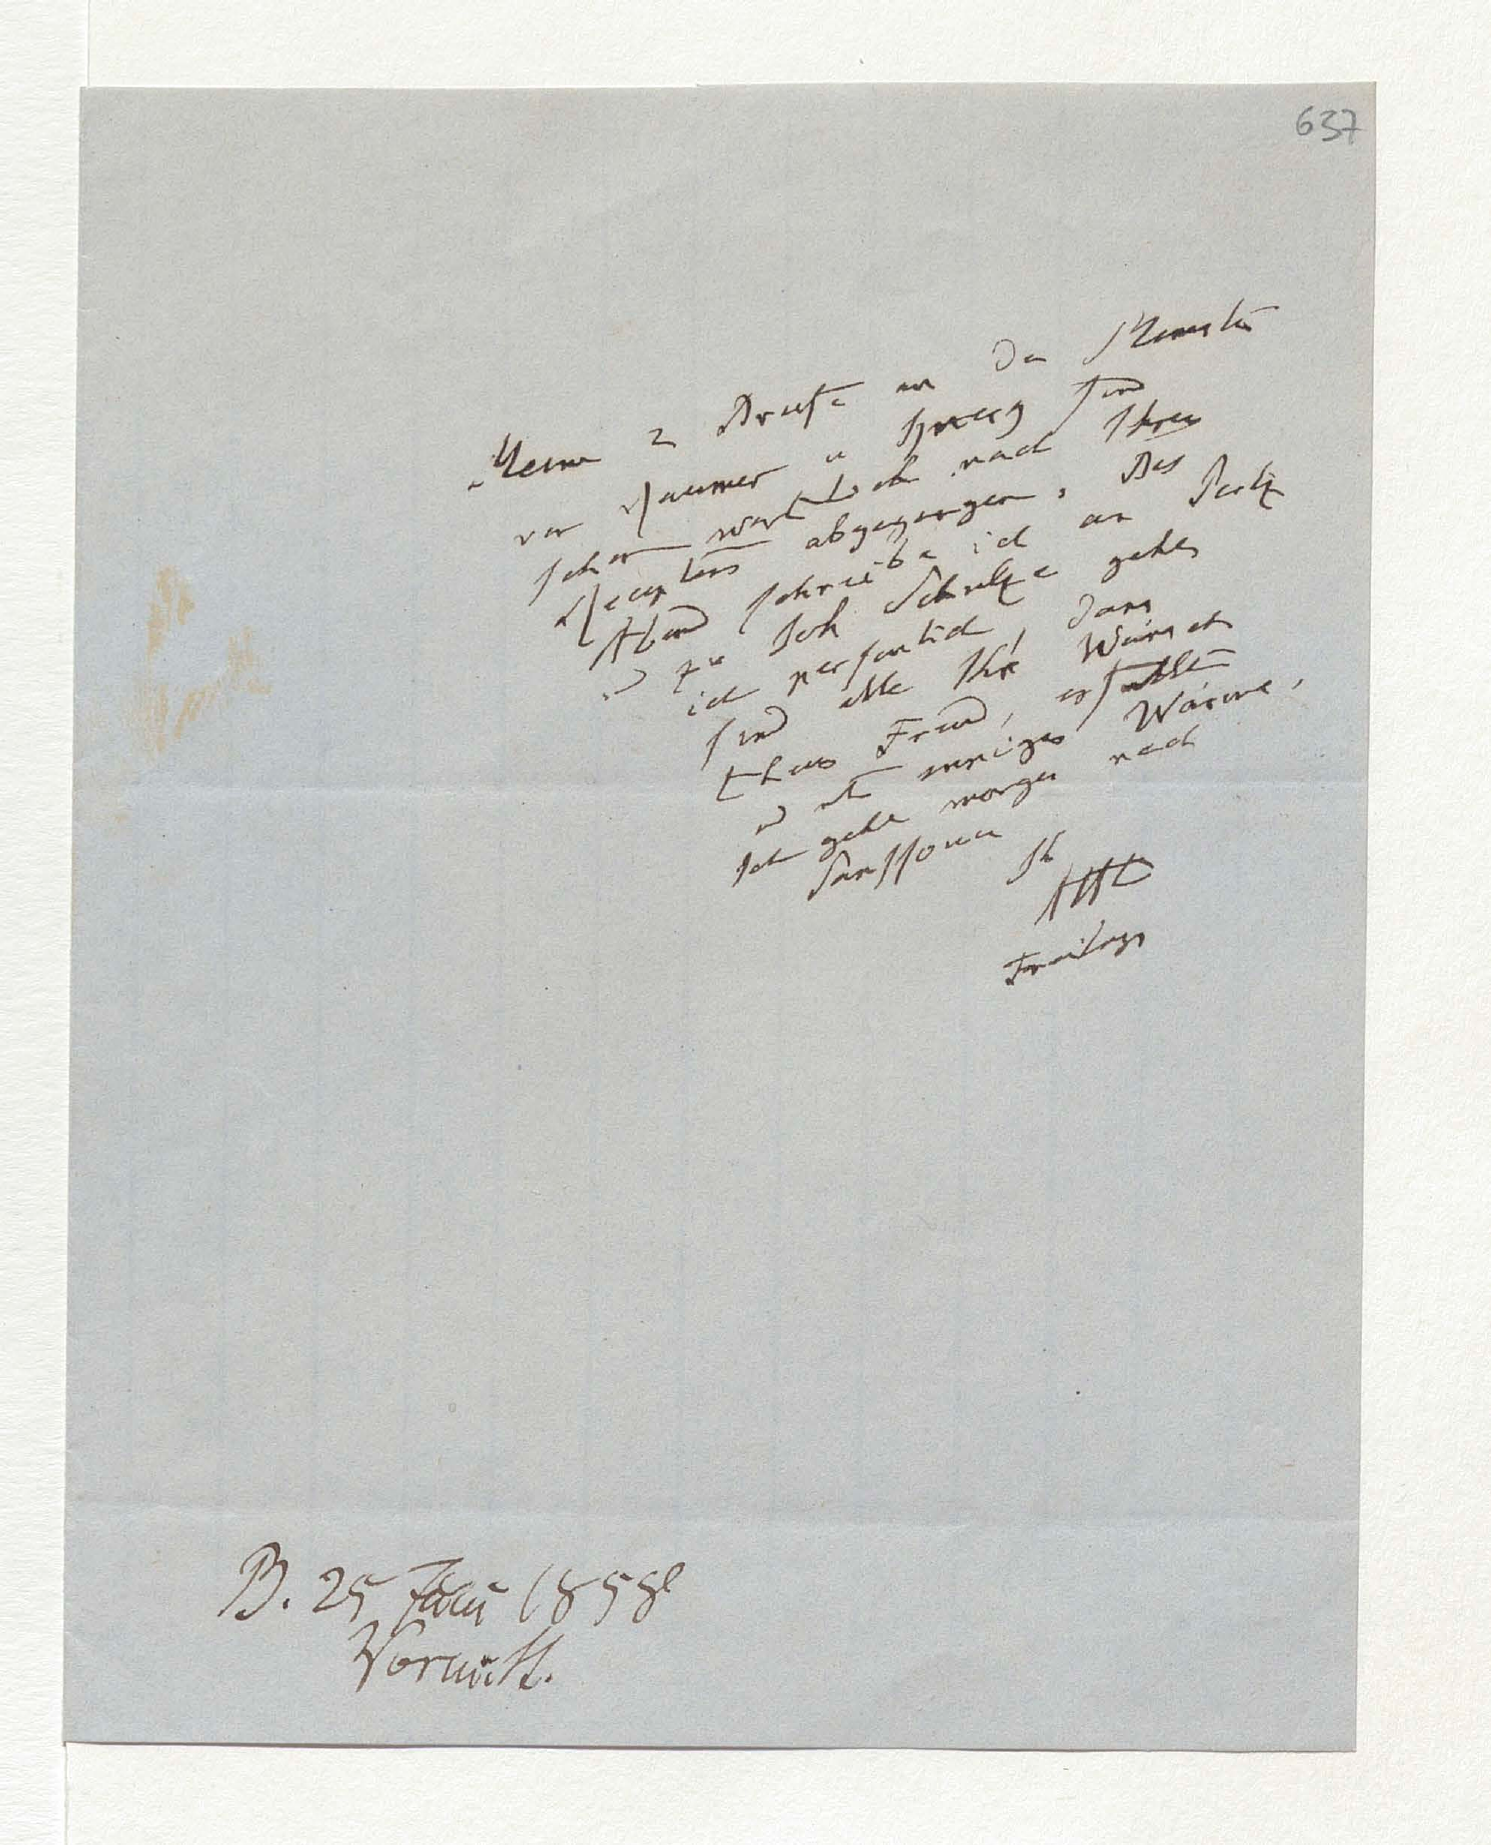 637
Meine 2 Briefe an den Minister
von Raumer u Spiker sind
schon wörtlich nach Ihren
Recepten abgegangen. Diesen
Abend schreibe ich an Pertz
und zu Joh Schulze gehe
ich persönlich, dann
sind alle Ihre Wünsche
theurer Freund, erfüllt
und mit inniger Wärme,
Ich gehe morgen nach
Sanssouci
Ih
AHt
Freitags
B. 25 Juni 1858
Vormitt.